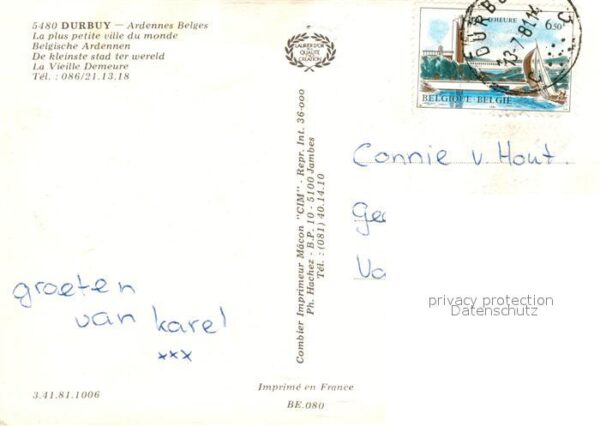 5480 DURBUY — Ardennes Belges
La plus petite ville du monde
Belgische Ardennen
De kleinste stad ter wereld
La Vieille Demeure
Tél. : 086/21.13.18
LAURIER D'OR
DE LA
QUALITÉ
CRÉATION
D'HEURE
6,50
BELGIQUE-BELGIE
DURBUY
13-7-81
C
C
Combier Imprimeur Mâcon "CIM" - Repr. Int. 36-000
Ph. Hachez - B.P. 10 - 5100 Jambes
Tél. : (081) 40.14.10
Connie v. Hout.
groeten
van karel
xxx
privacy protection
Datenschutz
3.41.81.1006
Imprimé en France
BE.080